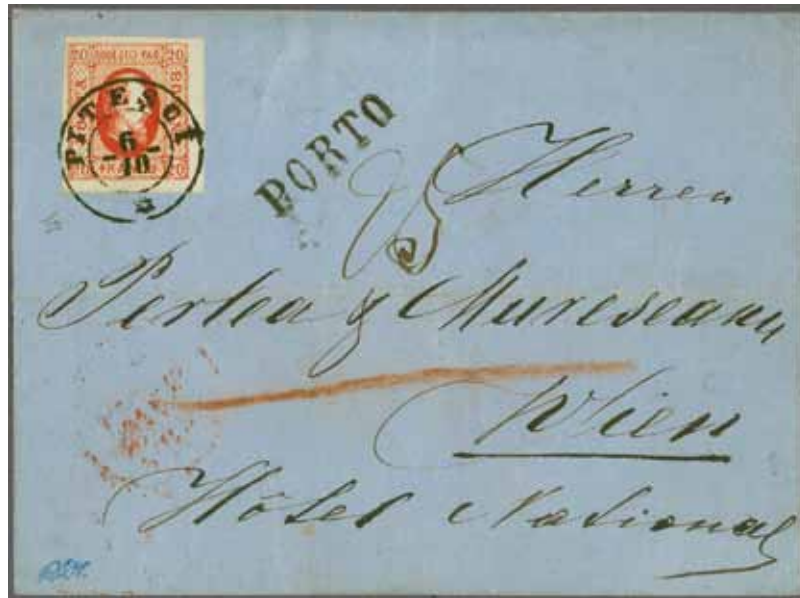 PITESCI
6
10
PORTO
20 20
20 20
25
Herren
Perlea & Mureseanu
Wien
Hôtel National